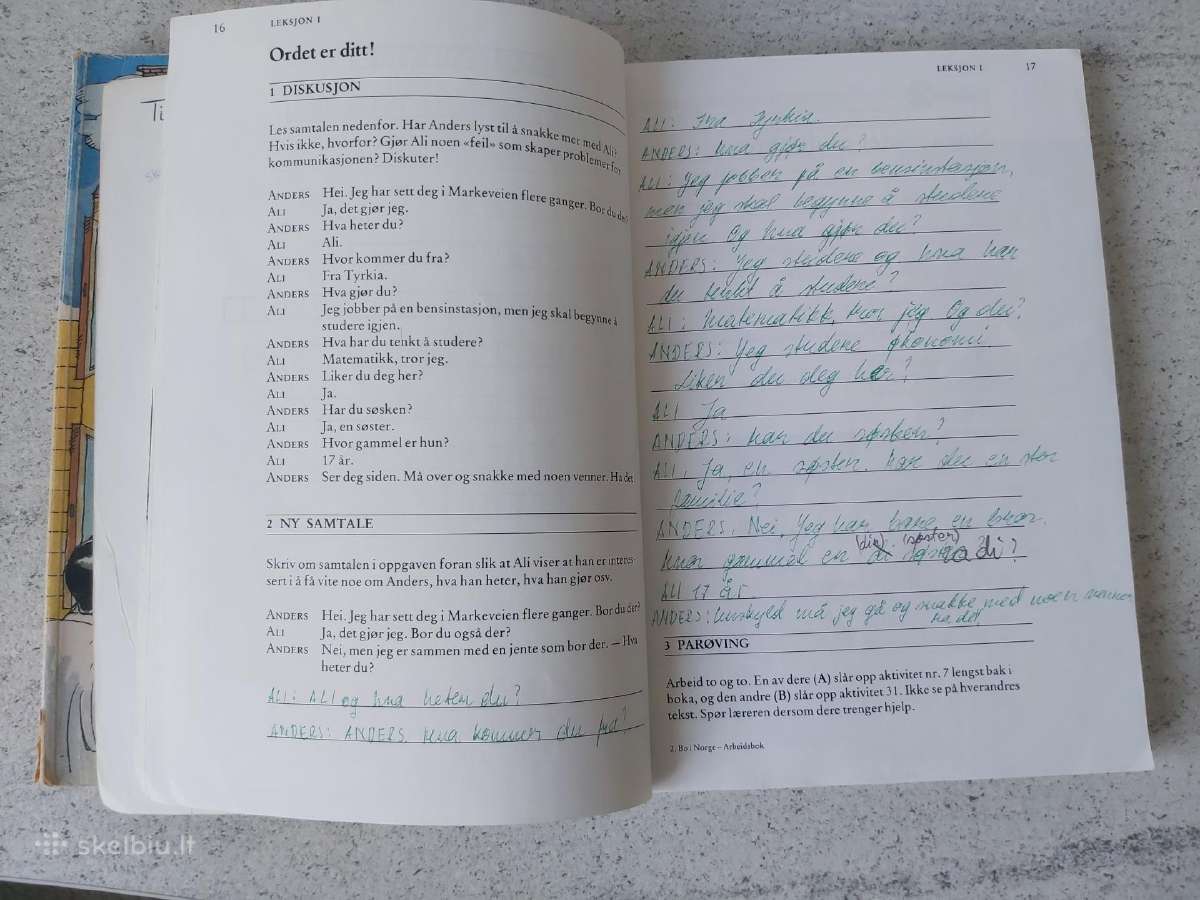 16 LEKSJON 1
Ordet er ditt!
1 DISKUSJON
Les samtalen nedenfor. Har Anders lyst til å snakke mer med Ali?
Hvis ikke, hvorfor? Gjør Ali noen «feil» som skaper problemer for
kommunikasjonen? Diskuter!
ANDERS Hei. Jeg har sett deg i Markeveien flere ganger. Bor du der?
ALI Ja, det gjør jeg.
ANDERS Hva heter du?
ALI Ali.
ANDERS Hvor kommer du fra?
ALI Fra Tyrkia.
ANDERS Hva gjør du?
ALI Jeg jobber på en bensinstasjon, men jeg skal begynne å
studere igjen.
ANDERS Hva har du tenkt å studere?
ALI Matematikk, tror jeg.
ANDERS Liker du deg her?
ALI Ja.
ANDERS Har du søsken?
ALI Ja, en søster.
ANDERS Hvor gammel er hun?
ALI 17 år.
ANDERS Ser deg siden. Må over og snakke med noen venner. Ha det
2 NY SAMTALE
Skriv om samtalen i oppgaven foran slik at Ali viser at han er interes-
sert i å få vite noe om Anders, hva han heter, hva han gjør osv.
ANDERS Hei. Jeg har sett deg i Markeveien flere ganger. Bor du der?
ALI Ja, det gjør jeg. Bor du også der?
ANDERS Nei, men jeg er sammen med en jente som bor der. – Hva
heter du?
ALI: ALI og hva heter du?
ANDERS: ANDERS. Hva kommer du fra?
LEKSJON 1 17
ALI: Fra Tyrkia.
ANDERS: Hva gjør du?
ALI: Jeg jobber på en bensinstasjon,
men jeg skal begynne å studere
igjen Og hva gjør du?
ANDERS: Jeg studere og hva har
du tenkt å studere?
ALI: Matematikk, tror jeg Og du?
ANDERS: Jeg studere økonomi
Liker du deg her?
ALI Ja
ANDERS: Har du søsken?
ALI, Ja, en søster. Har du en stor
familie?
ANDERS. Nei, Jeg har bare en bror.
(din) (søster)
Hvor gammel er
ALI 17 år.
ANDERS: Unskyld må jeg gå og snakke med noen venner
Ha det
3 PARØVING
Arbeid to og to. En av dere (A) slår opp aktivitet nr. 7 lengst bak i
boka, og den andre (B) slår opp aktivitet 31. Ikke se på hverandres
tekst. Spør læreren dersom dere trenger hjelp.
2. Bo i Norge – Arbeidsbok
skelbiu.lt